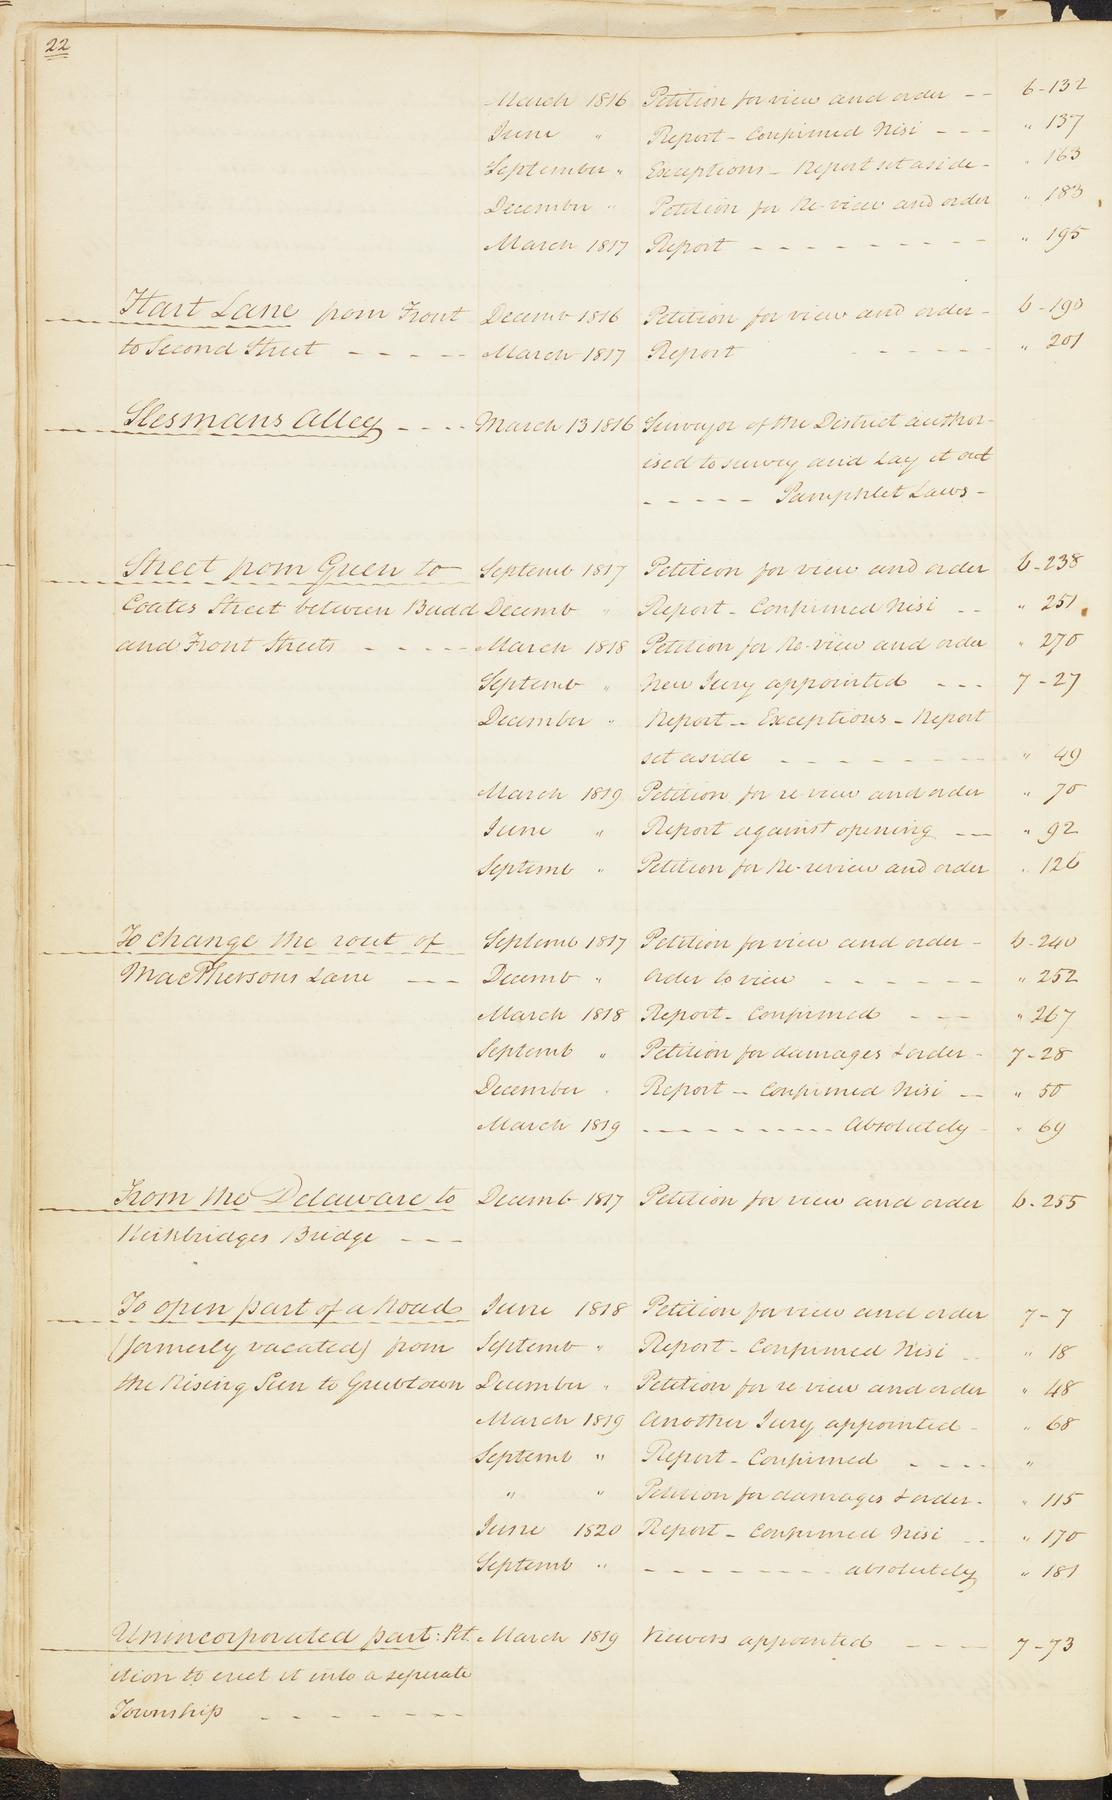 22
March 1816 Petition for view and order -- 6-132
June " Report - Confirmed Nisi --- " 137
September " Exceptions - Report set aside - " 163
December " Petition for Re-view and order " 183
March 1817 Report --------- " 195
Hart Lane from Front Decemb 1816 Petition for view and order - 6-190
to Second Street ---- March 1817 Report ------ " 201
Slesmans Alley ---- March 13 1816 Surveyor of the District author-
ised to survey and Lay it out
----- Pamphlet Laws -
Street from Green to Septemb 1817 Petition for view and order 6-238
Coates Street between Budd Decemb " Report - Confirmed Nisi -- " 251
and Front Streets ---- March 1818 Petition for Re-view and order " 270
Septemb " New Jury appointed --- 7-27
December " Report -- Exceptions - Report
set aside -------- " 49
March 1819 Petition for re view and order " 70
June " Report against opening --- " 92
Septemb " Petition for Re-review and order " 126
To change the rout of Septemb 1817 Petition for view and order - 6-240
MacPhersons Lane --- Decemb " Order to view ------ " 252
March 1818 Report - Confirmed --- " 267
Septemb " Petition for damages & order - 7-28
December " Report -- Confirmed Nisi -- " 50
March 1819 ---------- Absolutely - " 69
From the Delaware to Decemb 1817 Petition for view and order 6-255
Kirkbridges Bridge ---
To open part of a Road June 1818 Petition for view and order 7-7
(formerly vacated) from Septemb " Report - Confirmed Nisi -- " 18
the Rising Sun to December " Petition for re view and order " 48
March 1819 Another Jury appointed - " 68
Septemb " Report - Confirmed ---- "
" " Petition for damages & order - " 115
June 1820 Report - Confirmed Nisi -- " 170
Septemb " -------- absolutely " 181
Unincorporated part: Pet March 1819 Viewers appointed ---- 7-73
ition to erect it into a seperate
Township -------